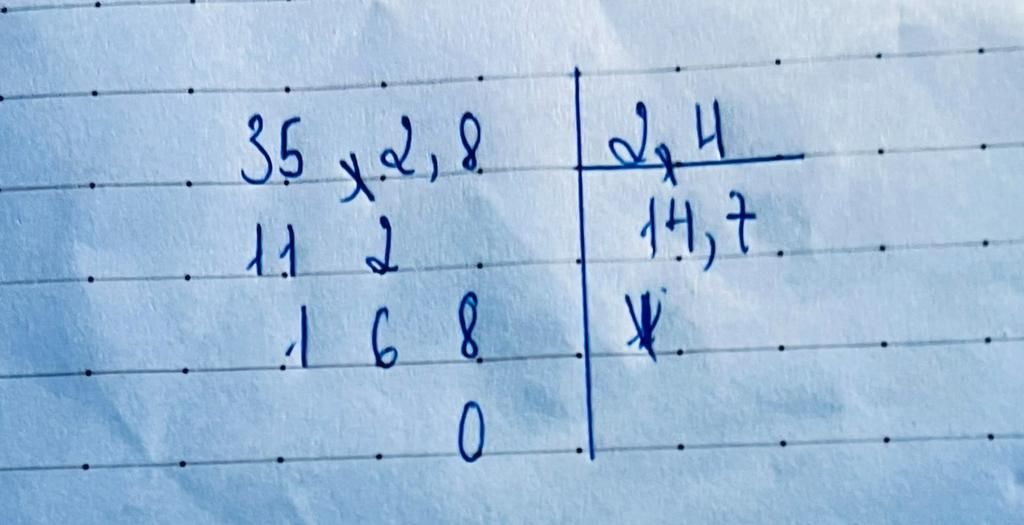 35,2,8 | 2,4
11 2 | 14,7
1 6 8
0